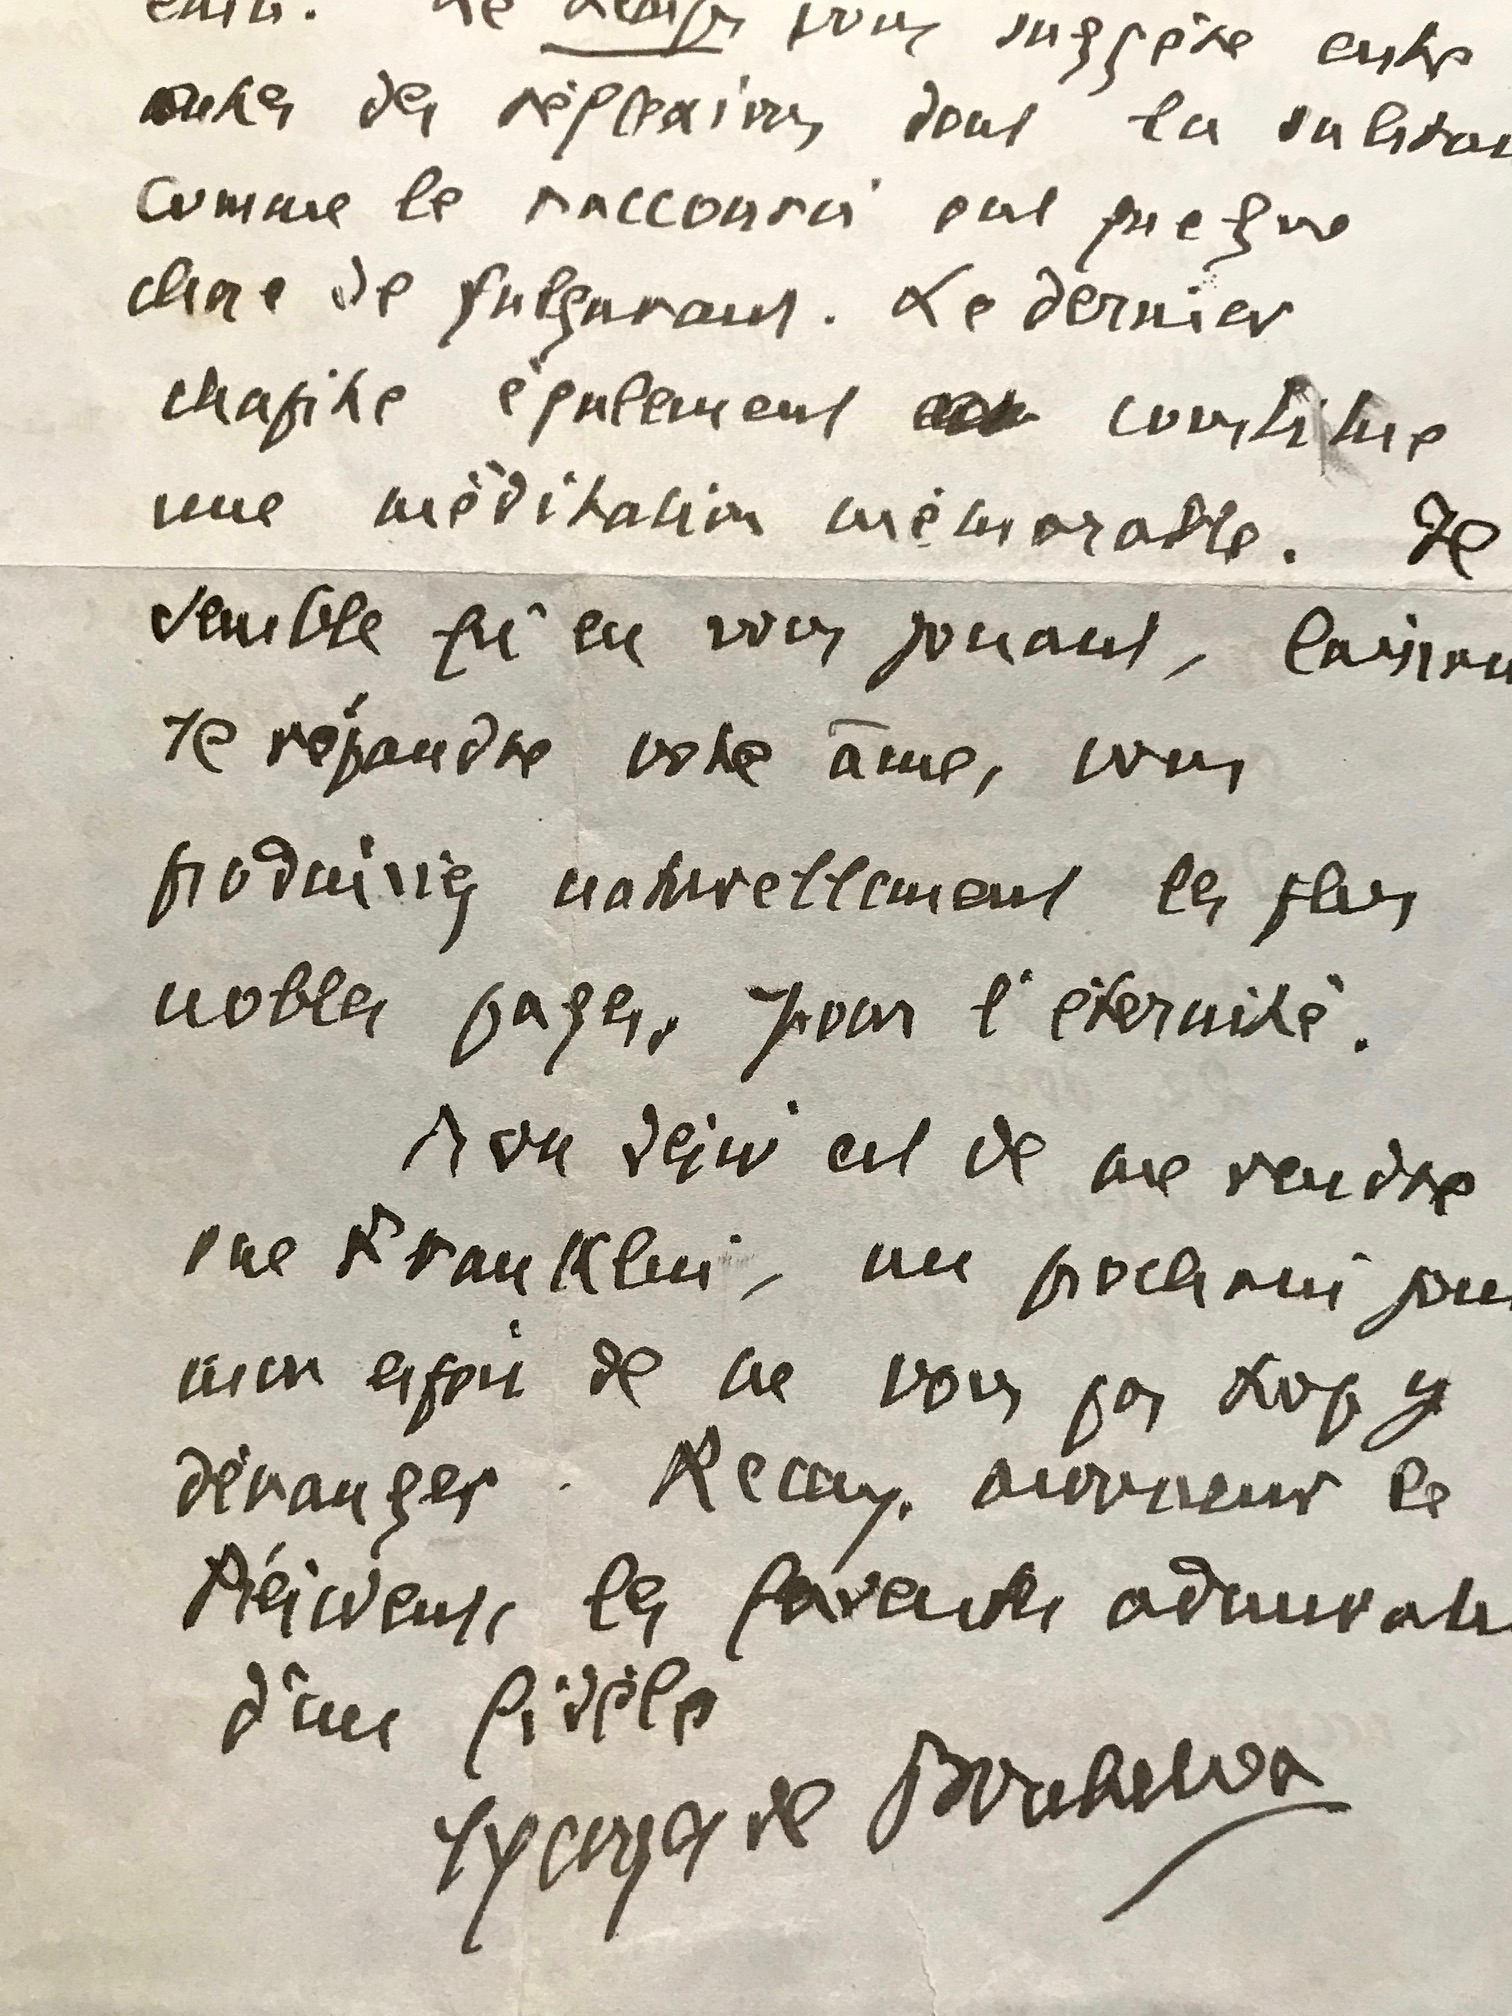 vous suggère entre
autres des réflexions dont la substan
comme le raccourci ont quelque
chose de fulgurant. Le dernier
chapitre également constitue
une méditation mémorable. Il
semble qu'en vous jouant, laissan
se répandre votre âme, vous
produisiez naturellement les plus
nobles pages, pour l'éternité.
Mon désir est de me rendre
rue Franklin, un prochain jour
mon espoir de ne vous pas trop y
déranger. Recevez, monsieur le
Président, les admirati
d'un fidèle
de